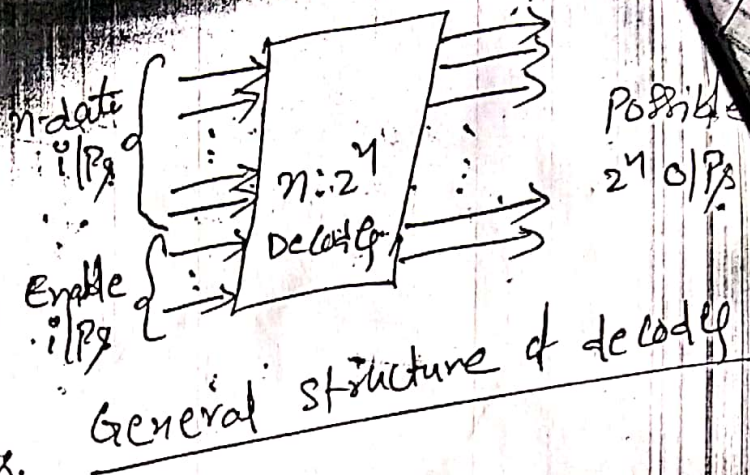 n-data
i/Ps
Enable
i/Ps
n:2ⁿ
Decoder
Possible
2ⁿ O/Ps
General structure of decoder